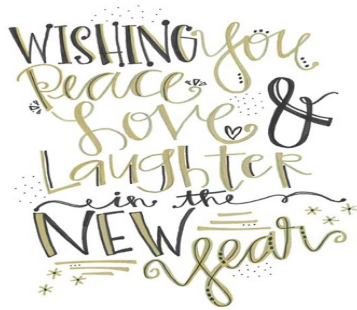 WISHING you
Peace
Love &
Laughter
in the
NEW
year